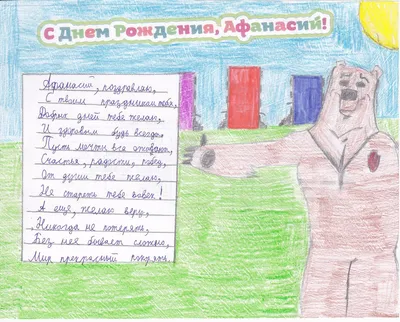 С Днем Рождения, Афанасий!
Афанасий, поздравляю,
С твоим праздником тебя,
Добрых дней тебе желаю,
И здоровым будь всегда.
Пусть мечты все оживают,
Счастья, радости, побед,
От души тебе желаю,
Не стареть тебе вовек!
А ещё, желаю веру,
Никогда не потерять,
Без неё бывает сложно,
Мир прекрасный